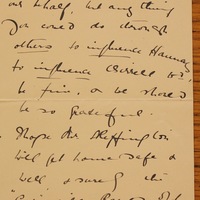 our behalf, but any thing
you could do through
others to influence Hannay
to influence Birrell wd.
be fine, & we should
be so grateful.
I hope Mr Skeffington
will get home safe &
well, & surely the